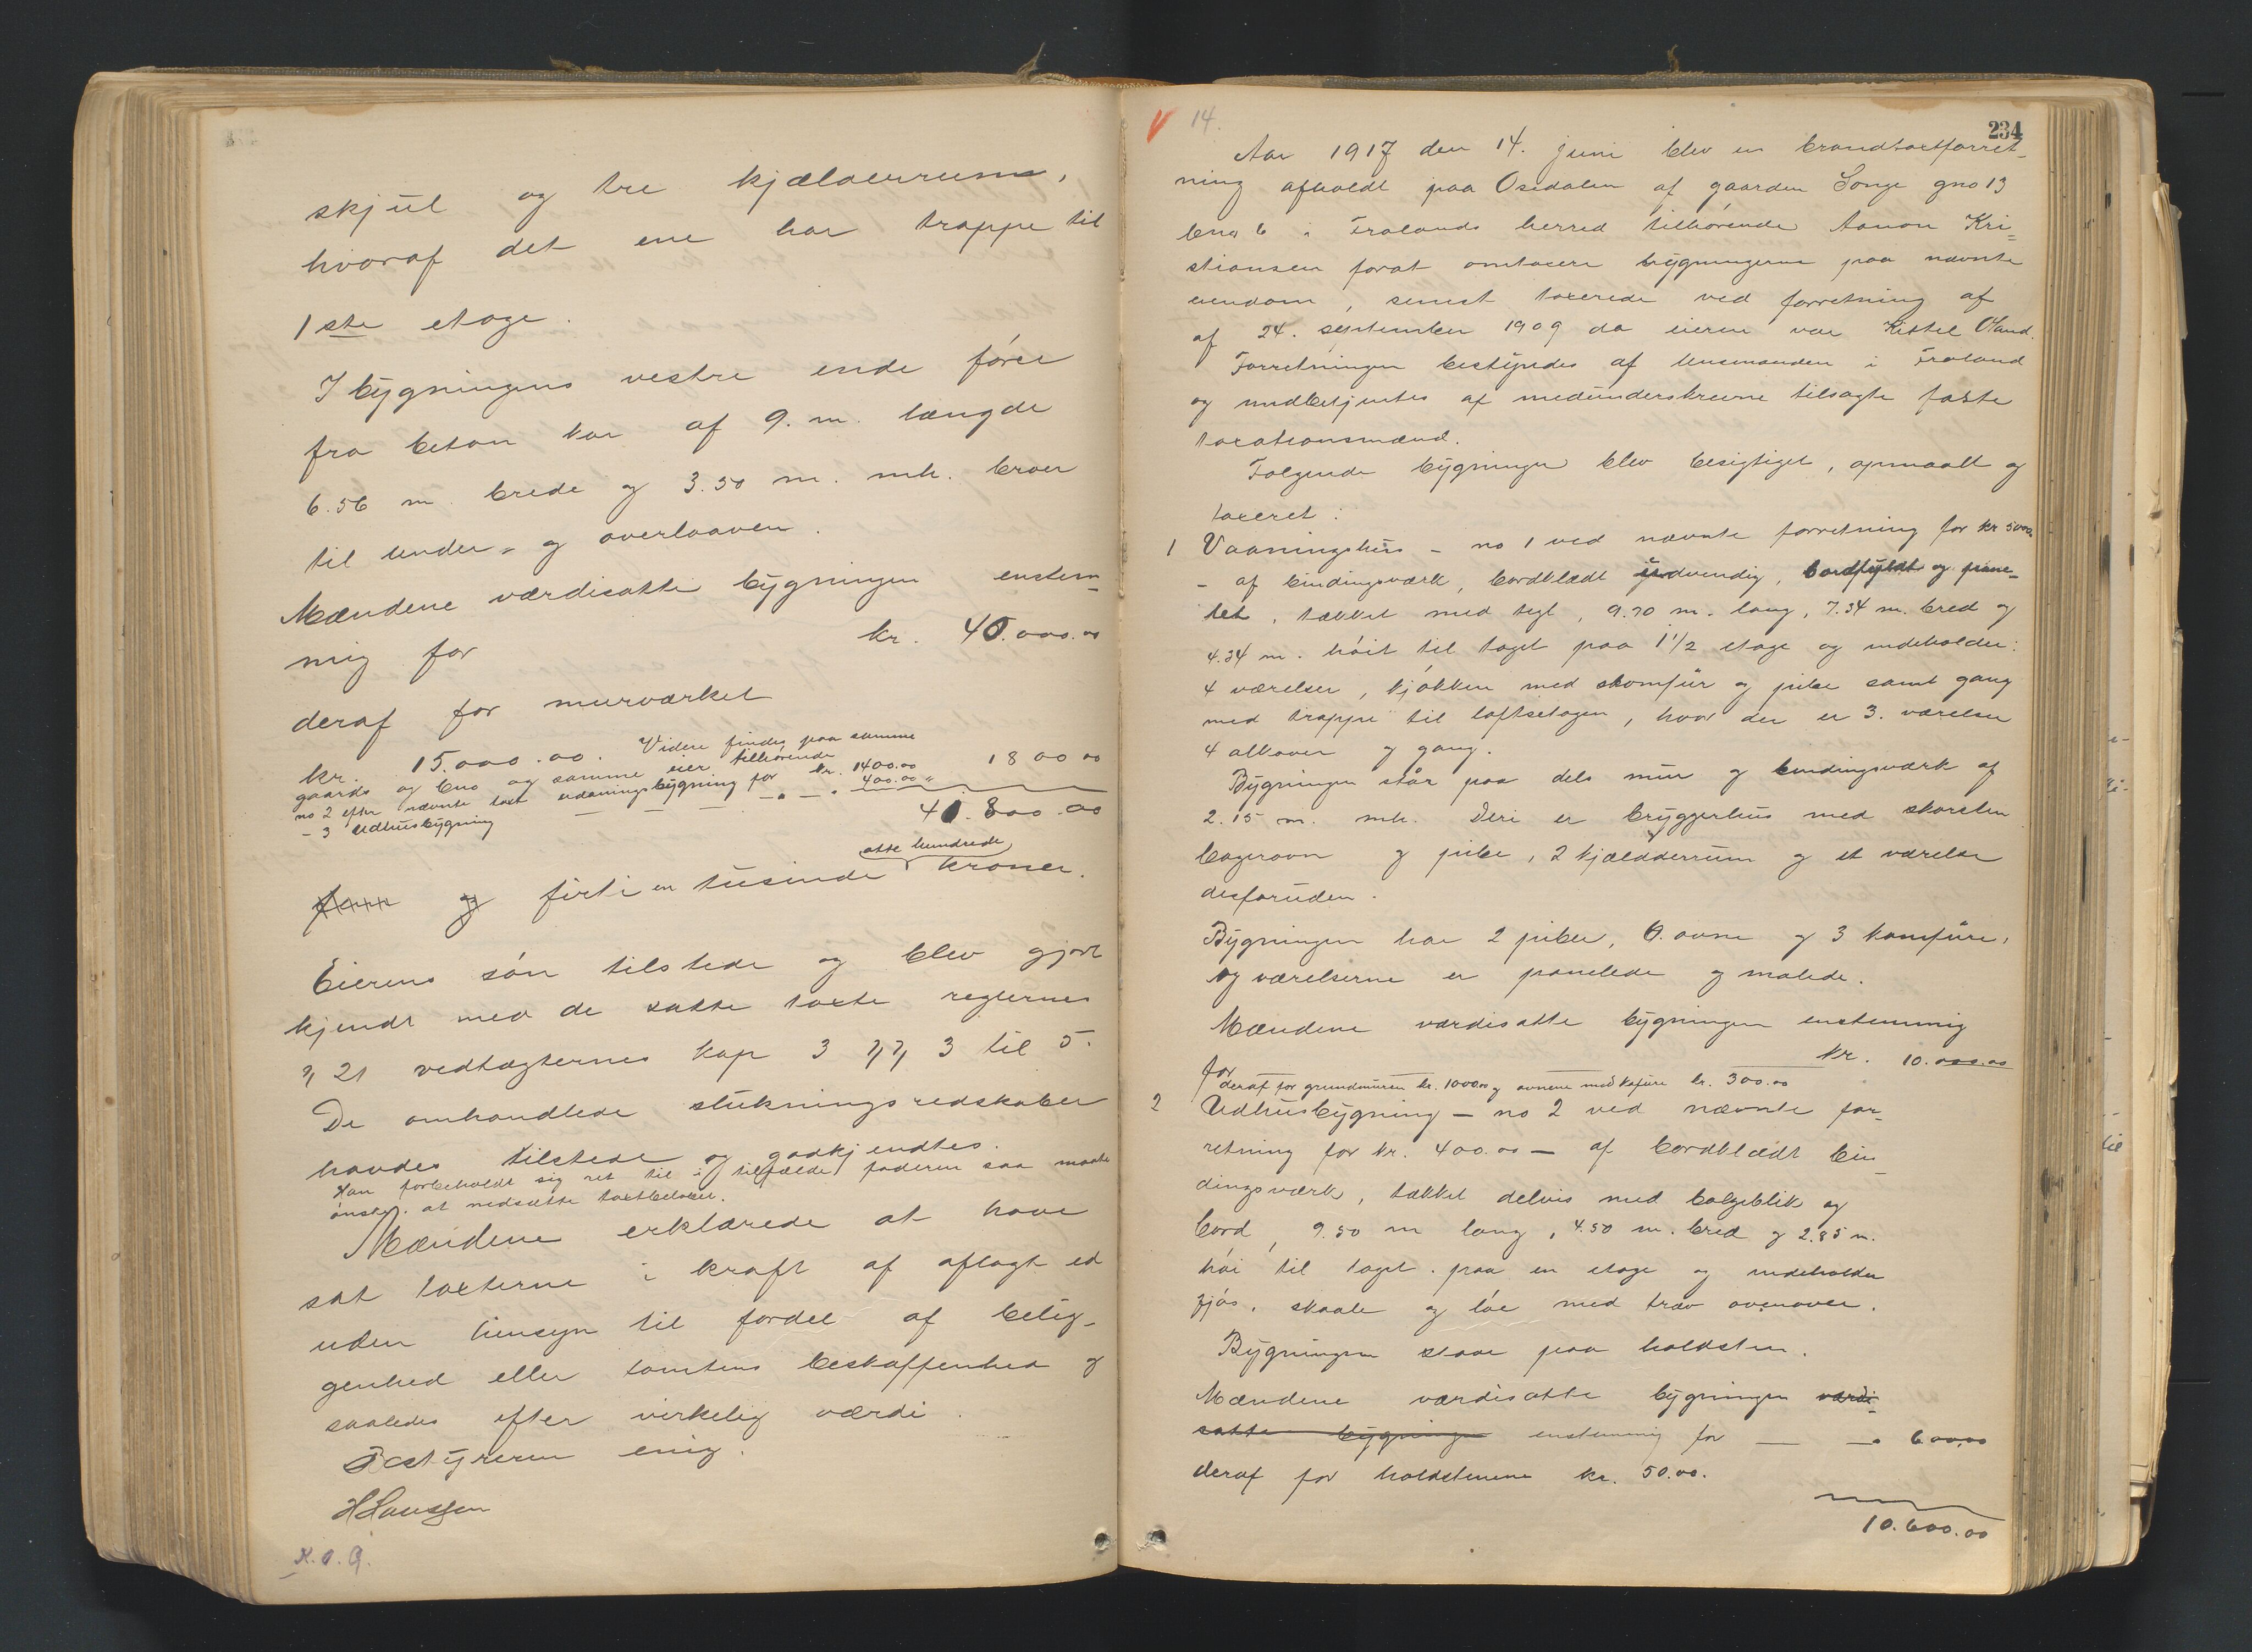 skjul og tre kjælderrum,
hvoraf det ene har trappe til
1ste etage.
I bygningens vestre ende fører
fra beton kar af 9. m. længde
6.56 m. brede og 3.50 m. mh. broer
til under- og overlaaven.
Mændene værdisatte bygningen enstem-
mig for kr. 40.000.00
deraf for murværket
kr. 15.000.00. Videre findes paa samme
gaards og bno og samme eier tilhørende 1800 00
no 2 efter nævnte taxt vaaningsbygning for kr. 1400.00
- 3 Udhusbygning — — — " — " 400.00 "
41.800.00
otte hundrede
og firti en tusinde kroner.
Eierens søn tilstede og blev gjort
kjendt med de satte taxte reglernes
§ 21 vedtægternes kap 3 §§ 3 til 5.
De omhandlede slukningsredskaber
havdes tilstede og godkjendtes.
Han forbeholdt sig ret til i tilfælde faderen saa maatte
ønske. at nedsætte taxtbeløbet.
Mændene erklærede at have
sat taxterne i kraft af aflagt ed
uden hensyn til fordel af belig-
genhed eller tomtens beskaffenhed og
saaledes efter virkelig værdi.
Bestyreren enig.
H Lanssen
K.O.G.
V 14.
234
Aar 1917 den 14. juni blev en brandtaxtforret-
ning afholdt paa Osedalen af gaarden Songe gno 13
bno 6 i Frolands herred tilhørende Aanon Kri=
stiansen forat omtaxere bygningerne paa nævnte
eiendom, senest taxerede ved forretning af
af 24. september 1909 da eieren var Kittel Oland.
Forretningen bestyredes af lensmanden i Froland
og medbetjentes af medunderskrevne tilsagte faste
taxationsmænd.
Følgende bygninger blev besigtiget, opmaalt og
taxeret:
1 Vaaningshus - no 1 ved nævnte forretning for kr 5000
- af bindingsværk, bordklædt udvendig, bordfyldt og pane-
let, tækket med tegl, 9.70 m. lang, 7.34 m. bred og
4.34 m. høit til taget paa 1 1/2 etage og indeholder:
4 værelser, kjøkken med skomfur og pibe samt gang
med trappe til loftsetagen, hvor der er 3. værelser
4 alkover og gang.
Bygningen står paa dels mur og bindingsværk af
2.15 m. mh. Deri er bryggerhus med skorsten
bagerovn og pibe, 2 kjælderrum og et værelse
desforuden.
Bygningen har 2 piber, 6. ovne og 3 komfure,
og værelserne er panelede og malede.
Mændene værdisatte bygningen enstemmig
for kr. 10.000.00
deraf for grundmuren kr. 1000.00 og ovnene med kofure kr. 300.00
2 Udhusbygning - no 2 ved nævnte for-
retning for kr. 400.00 - af bordklædt bin-
dingsværk, tækket delvis med bølgeblik og
bord, 9.50 m lang, 4.50 m. bred og 2.85 m.
høi til taget. paa en etage og indeholder
fjøs, skaale og løe med træv ovenover.
Bygningen staar paa holdsten.
Mændene værdisatte bygningen værdi-
satte bygningen enstemmig for — — " 600.00
deraf for holdstenene kr. 50.00.
10.600.00